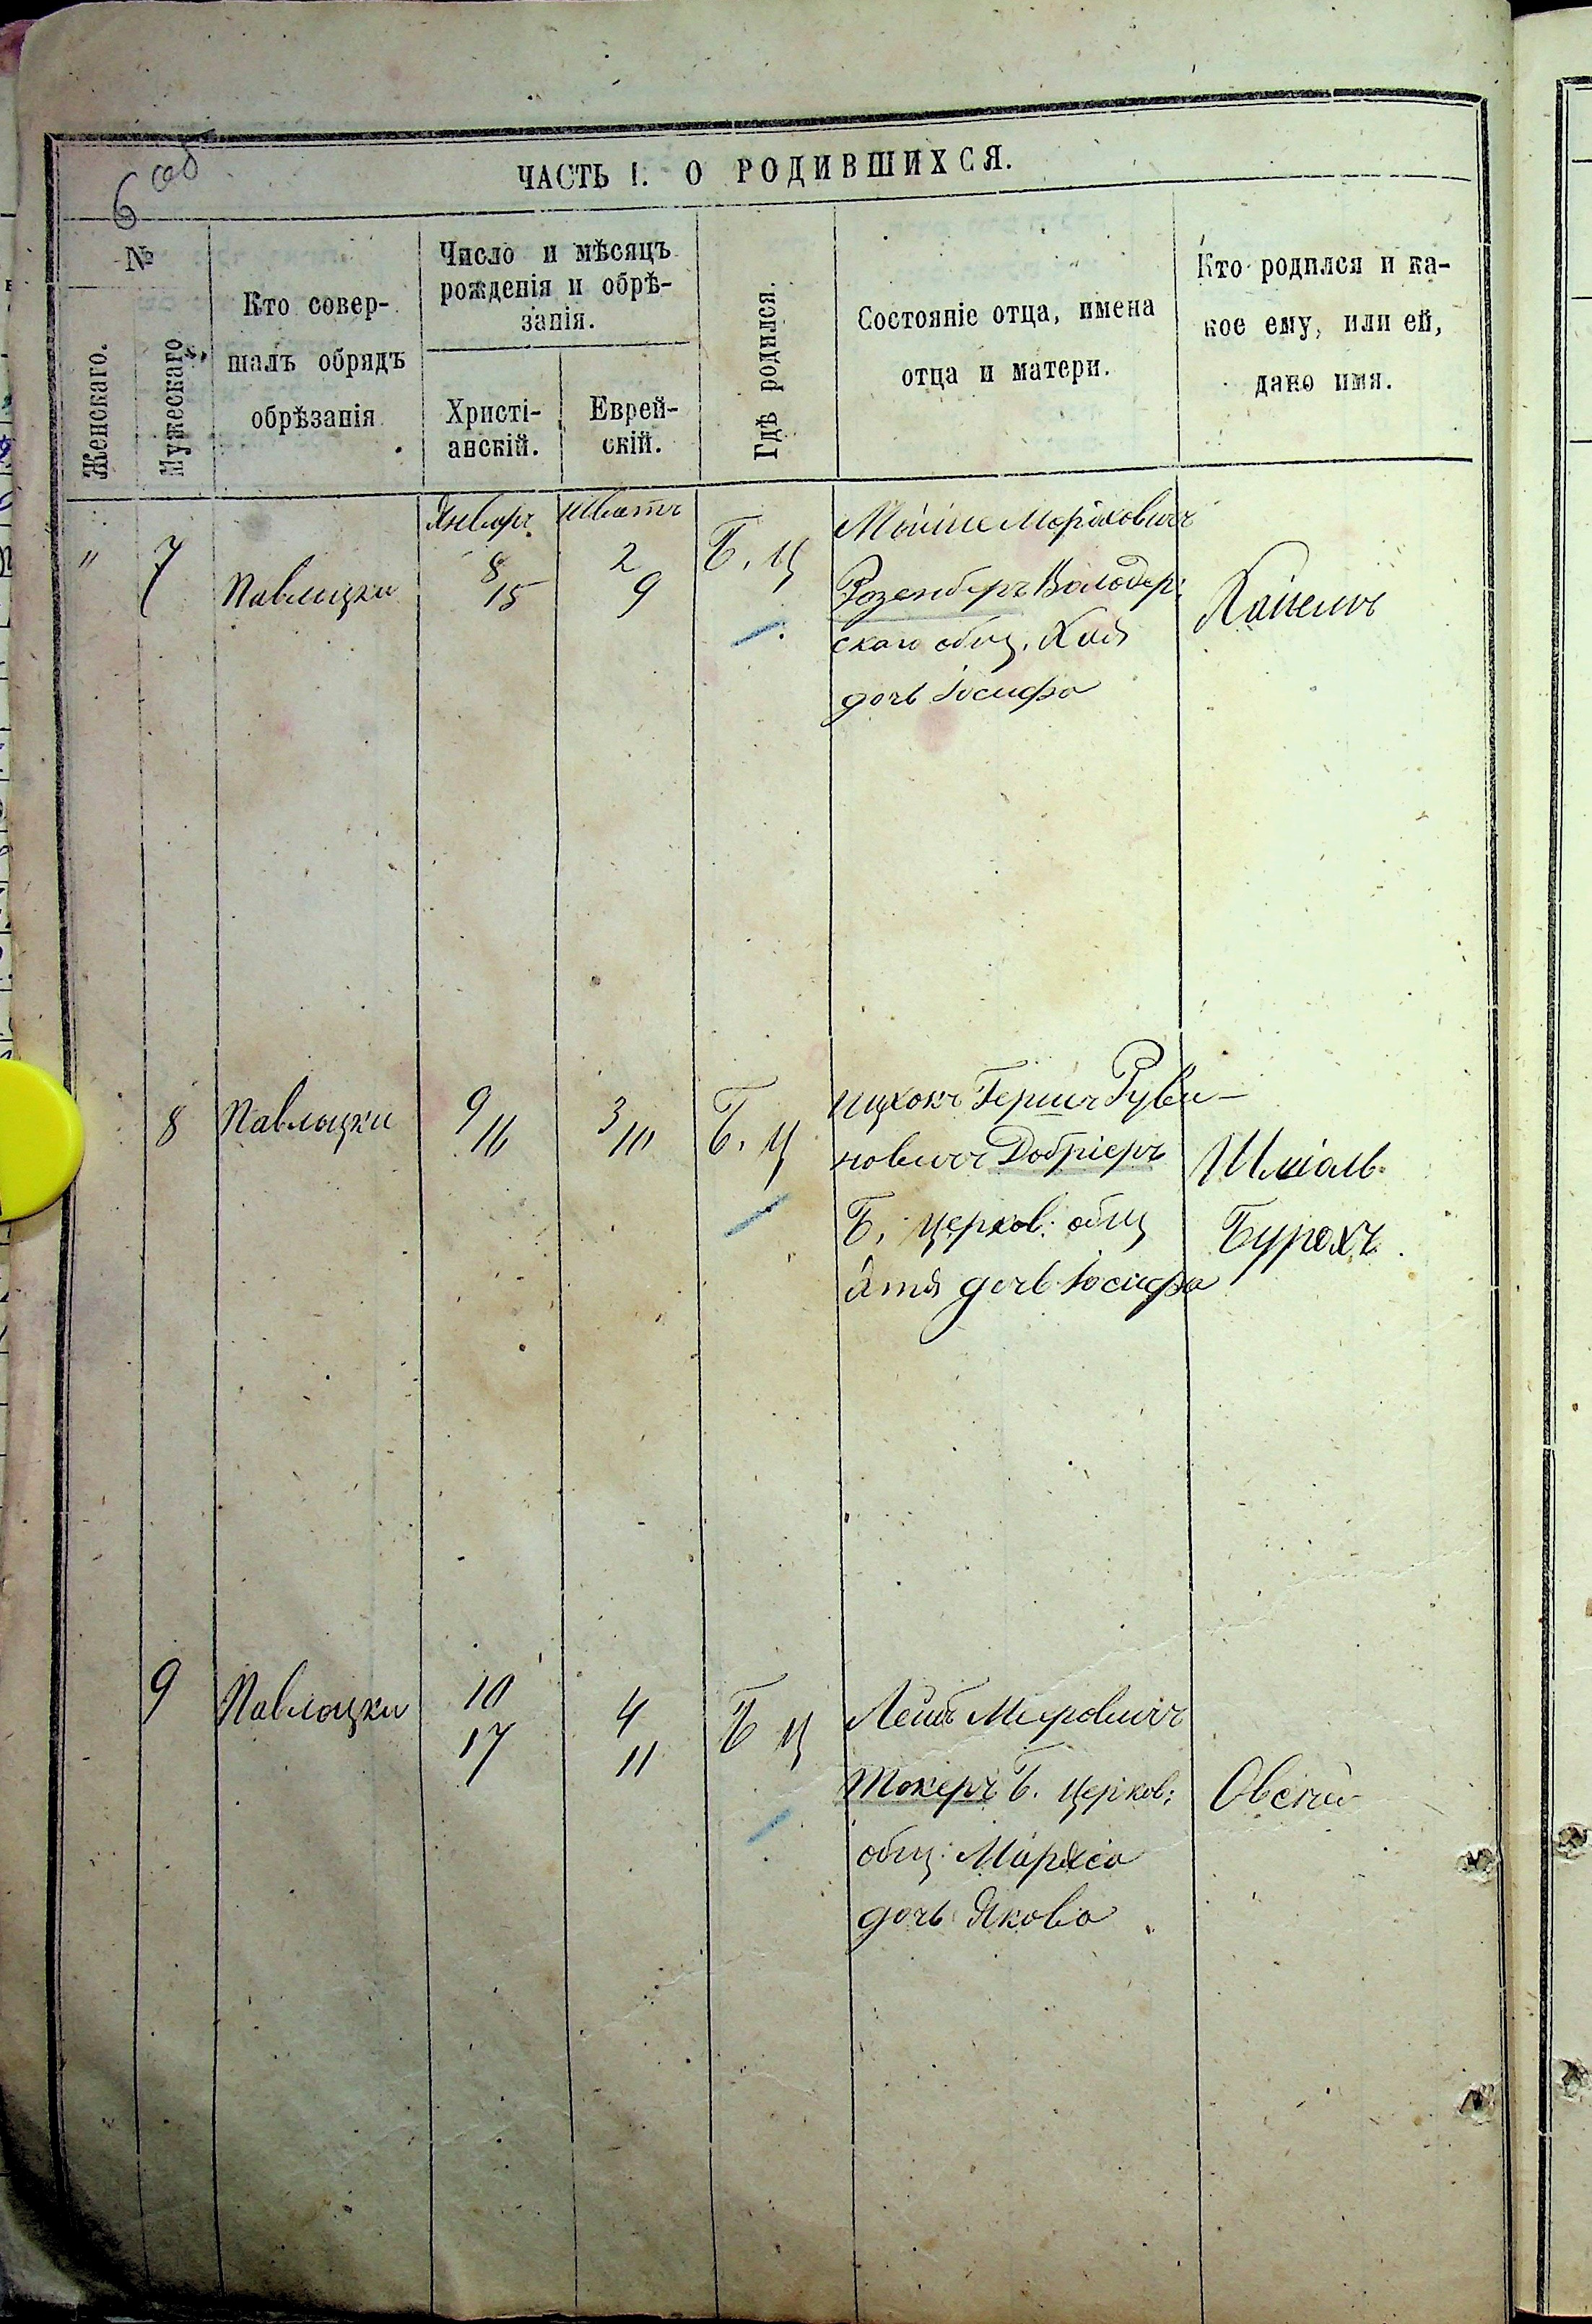 6 об
ЧАСТЬ I. О РОДИВШИХСЯ.
№
Женскаго.
Мужескаго
Кто совер-
шалъ обрядъ
обрѣзанія
Число и мѣсяцъ
рожденія и обрѣ-
занія.
Христі-
анскій.
Еврей-
скій.
Гдѣ родился.
Состояніе отца, имена
отца и матери.
Кто родился и ка-
кое ему, или ей,
дано имя.
Январь Шватъ
" 7 Павлоцки 8/15 2/9 Б. Ц
Розенберъ Володар:
ской общ. Хая
дочь Іосифа
8 Павлоцки 9/16 3/10 Б. Ц
Ицхокъ Гершъ Руви-
новичъ Добріеръ
Б. Церков: общ
дочь Іосифа
Шміолъ-
Бурохъ
9 Павлоцки 10/17 4/11 Б Ц
Лейбъ Мееровичъ
Токеръ Б. Церков:
общ: Маріяса
дочь Якова
Овсей